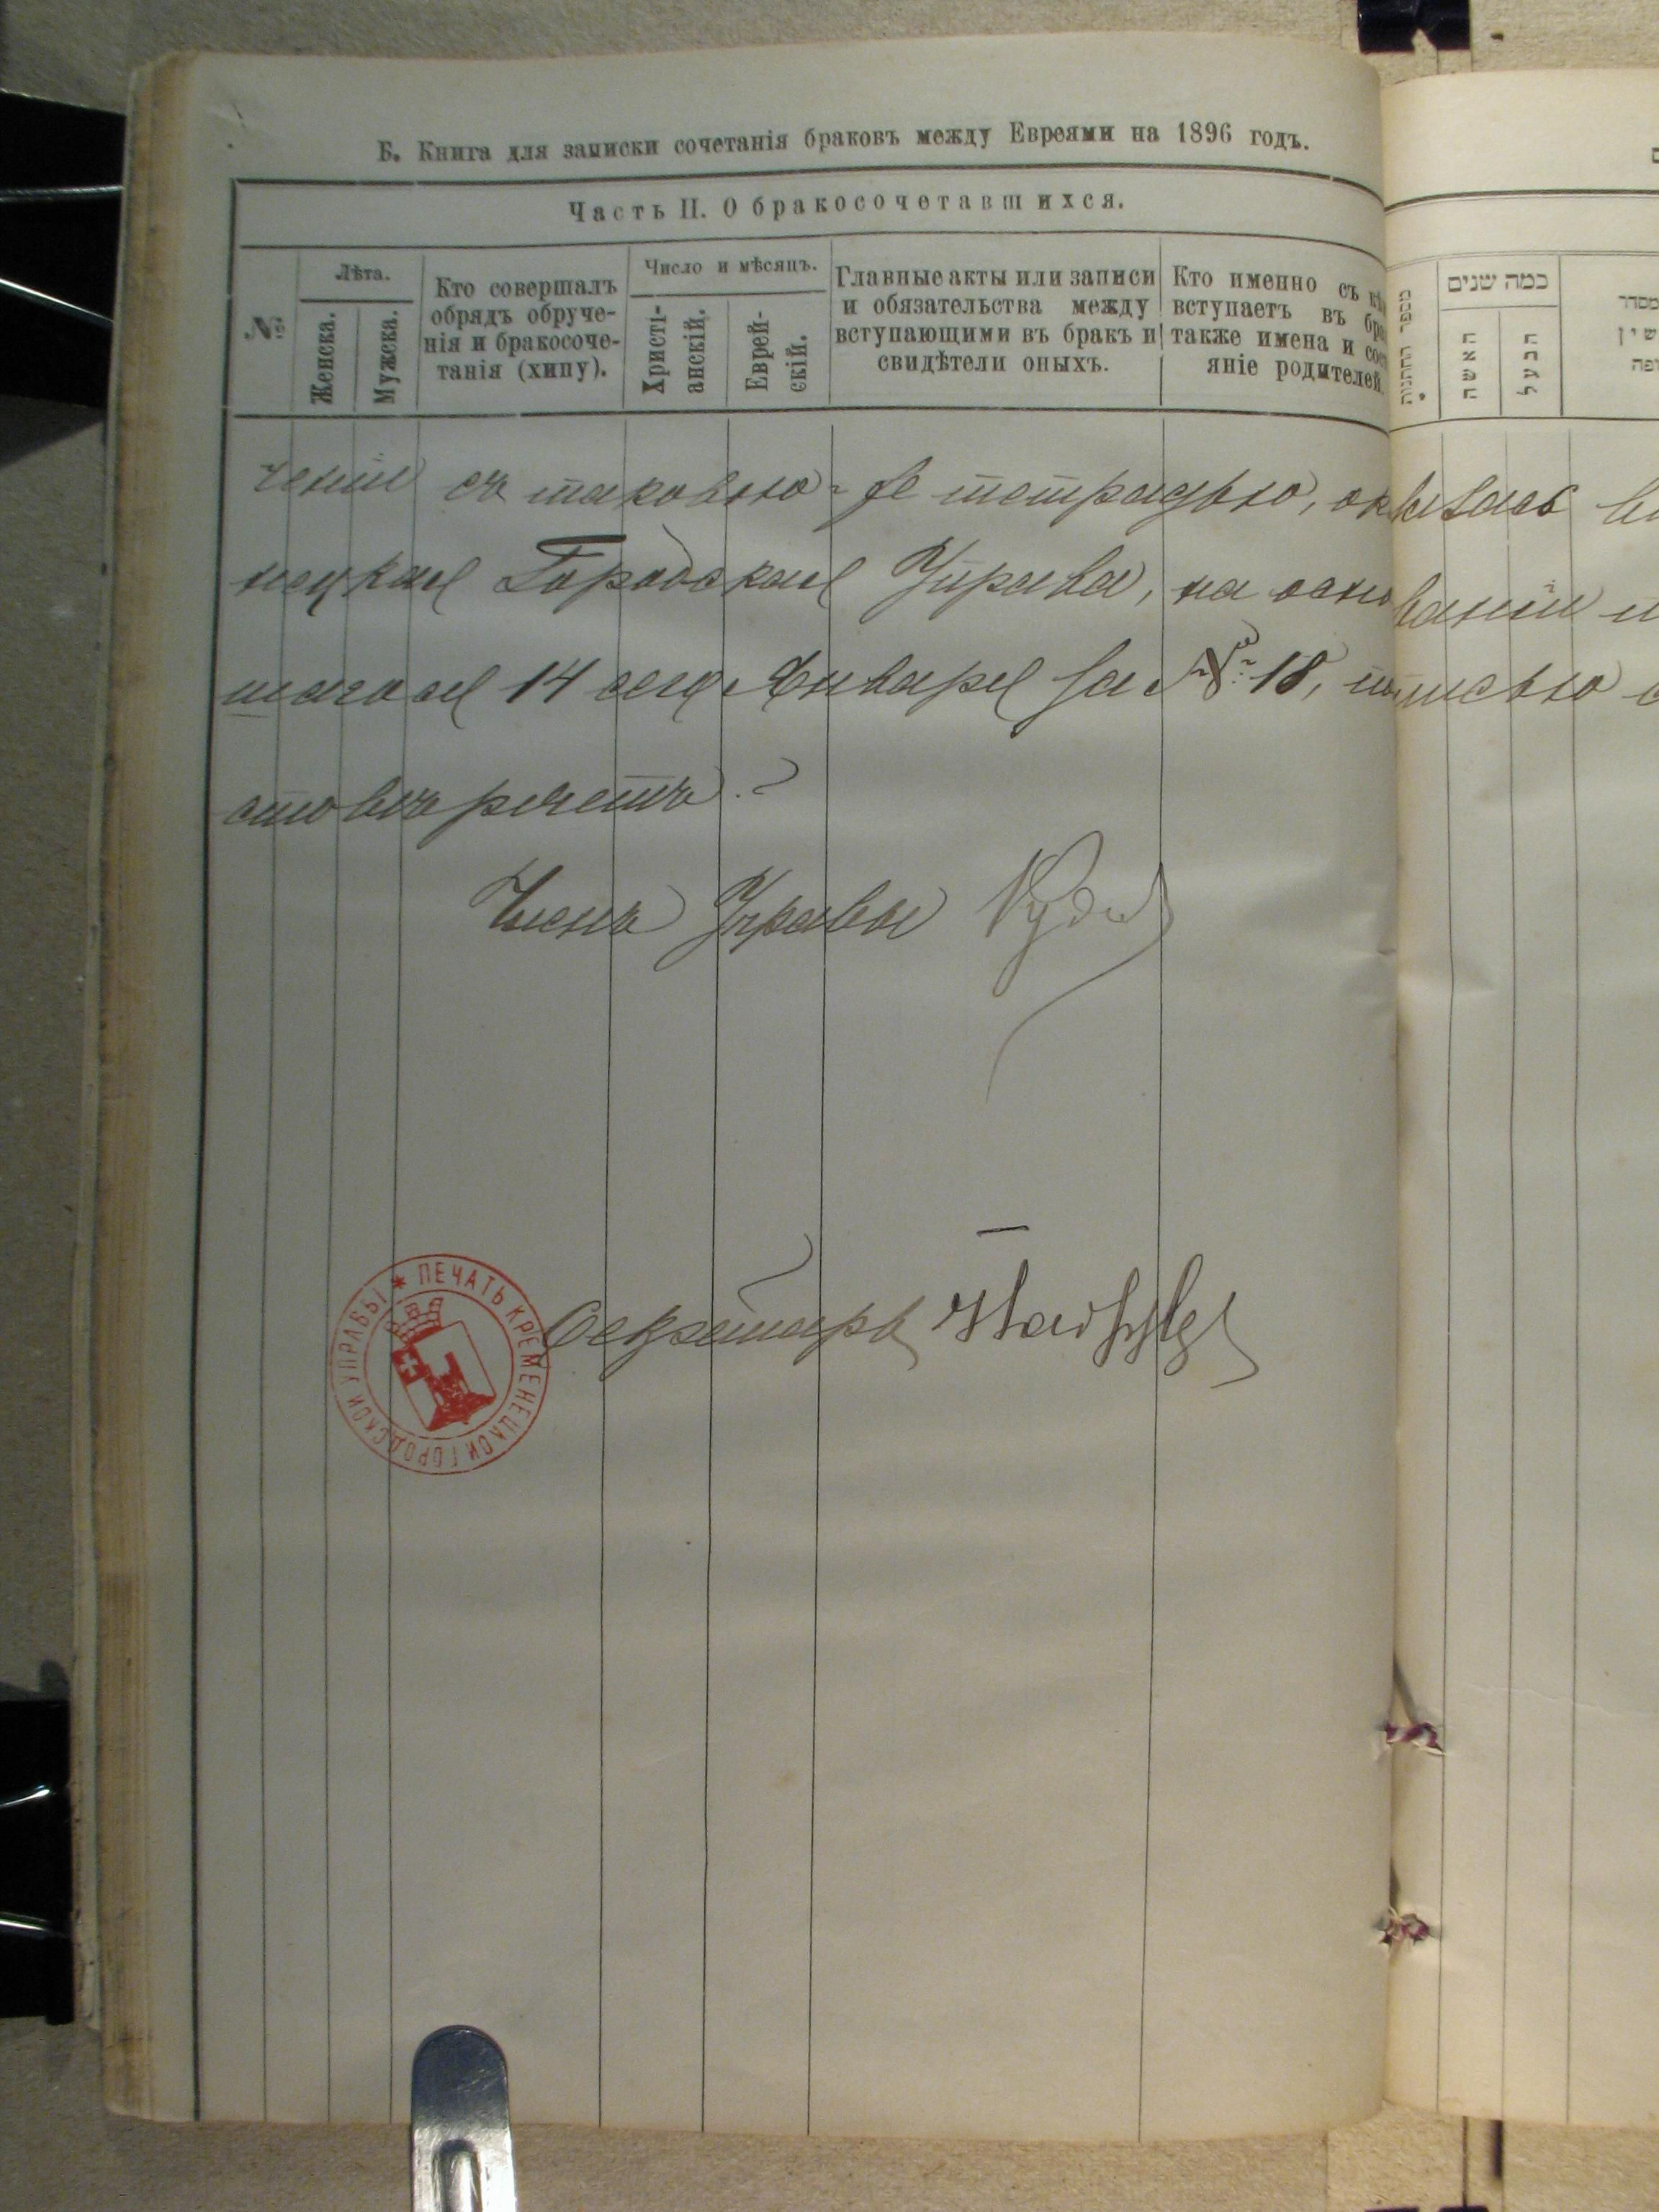 Б. Книга для записки сочетанія браковъ между Евреями на 1896 годъ.
Часть II. О бракосочетавшихся.
№
Лѣта.
Женска.
Мужска.
Кто совершалъ
обрядъ обруче-
нія и бракосоче-
танія (хипу).
Число и мѣсяцъ.
Христі-
анскій.
Еврей-
скій.
Главные акты или записи
и обязательства между
вступающими въ бракъ и
свидѣтели оныхъ.
Кто именно съ
вступаетъ въ
также имена и
яніе родителей.
כמה שנים
האשה
הבעל
ченіи съ таковою-же тетрадью,
нецкая Городская Управа, на основаніи
14 сего Января за № 18,
Членъ Управы
Секретарь
ПЕЧАТЬ КРЕМЕНЕЦКОЙ ГОРОДСКОЙ УПРАВЫ